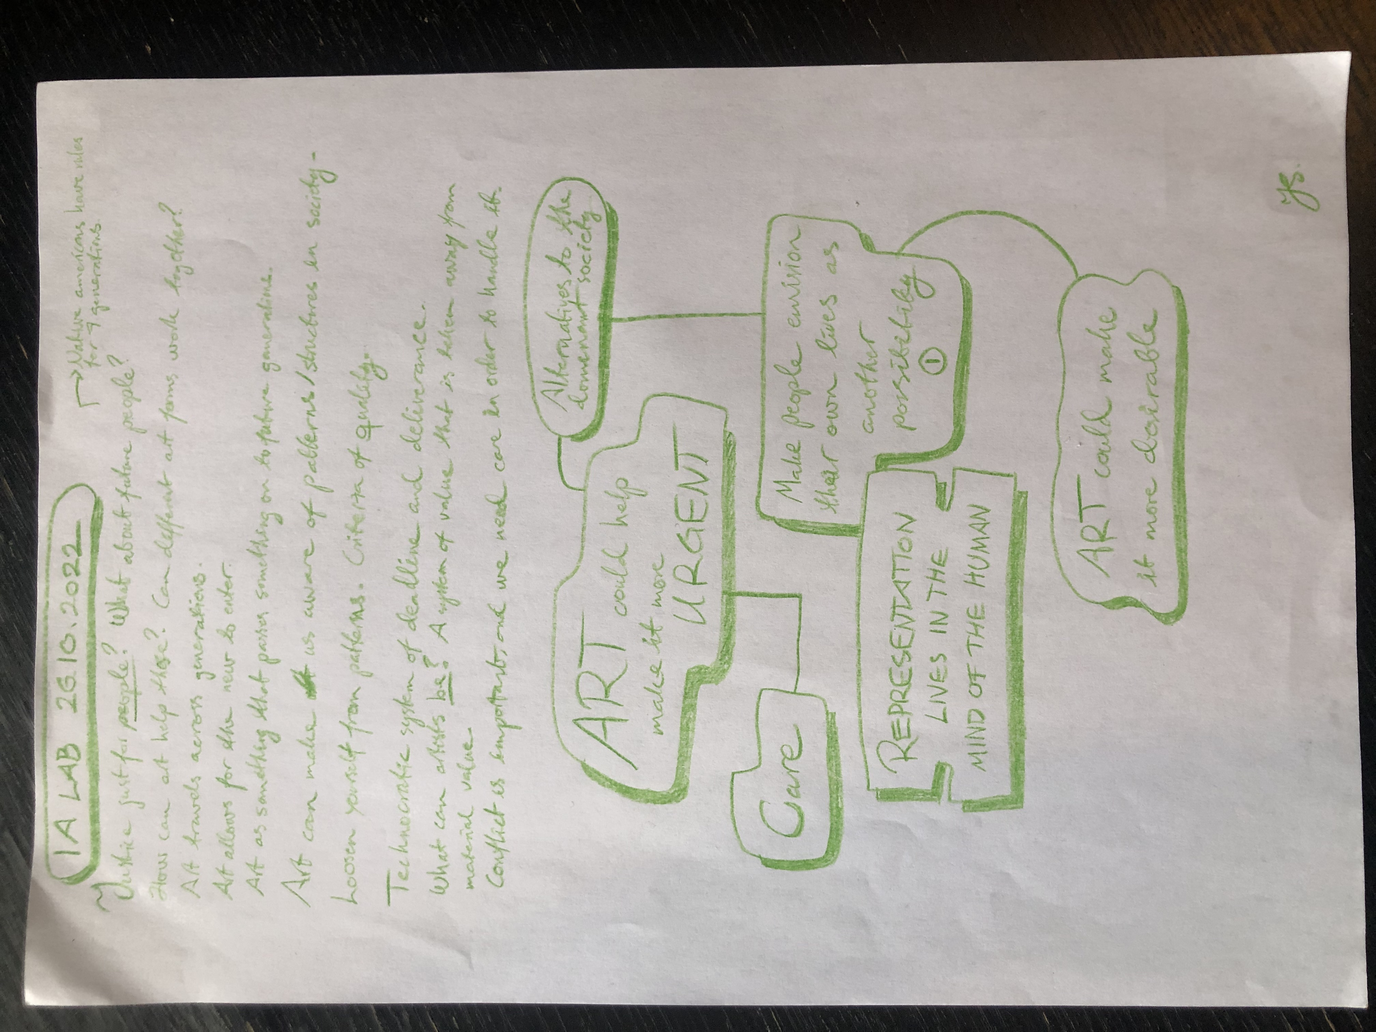 1A LAB 26.10.2022
→ Native americans have rules
for 7 generations
Justice just for people? What about future people?
How can art help these? Can different art forms work together?
Art travels across generations.
Art allows for the new to enter.
Art as something that passes something on to future generations.
Art can make us aware of patterns/structures in society -
Loosen yourself from patterns. Criteria of quality.
Technocratic system of deadline and deliverance.
What can artists be? A system of value that is taken away from
material value.
Conflict is important, and we need care in order to handle it.
Alternatives to the
dominant society
ART could help
make it more
URGENT
Care
Make people envision
their own lives as
another
possibility
1
REPRESENTATION
LIVES IN THE
MIND OF THE HUMAN
ART could make
it more desirable